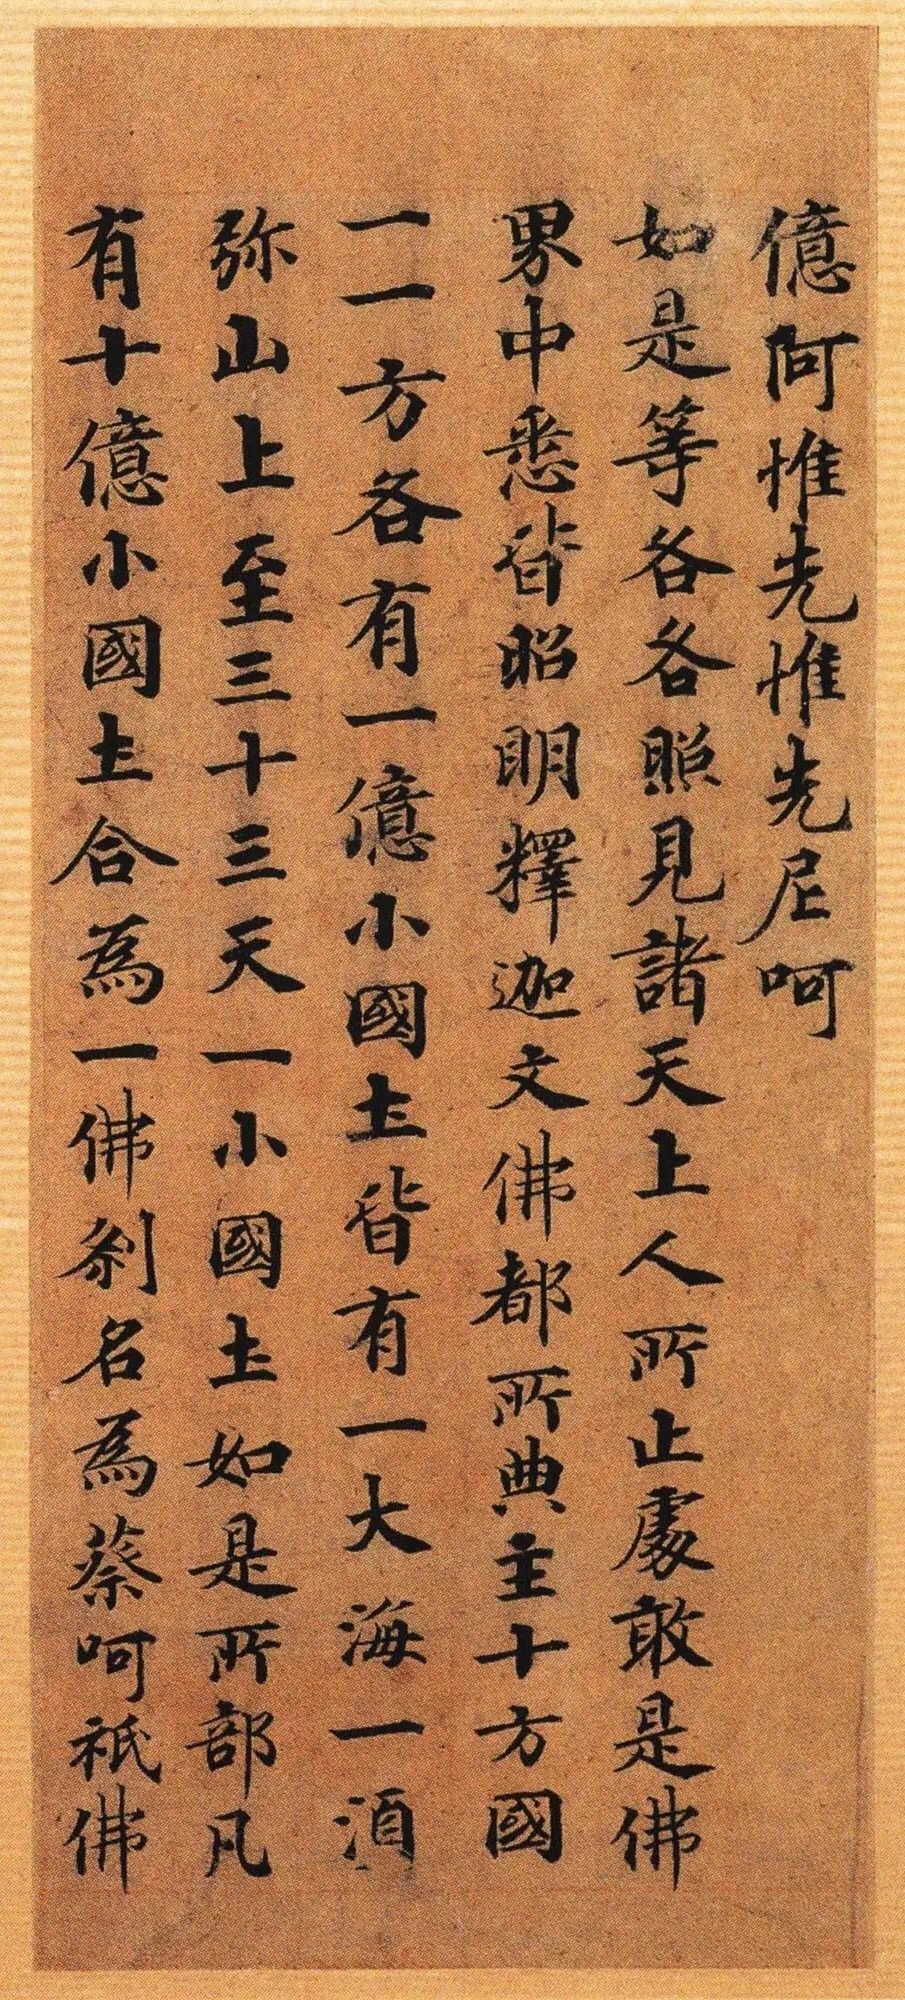 億阿惟先惟先尼呵
如是等各各照見諸天上人所止處敢是佛
界中悉皆昭明釋迦文佛都所典主十方國
一一方各有一億小國土皆有一大海一須
弥山上至三十三天一小國土如是所部凡
有十億小國土合為一佛刹名為蔡呵祇佛